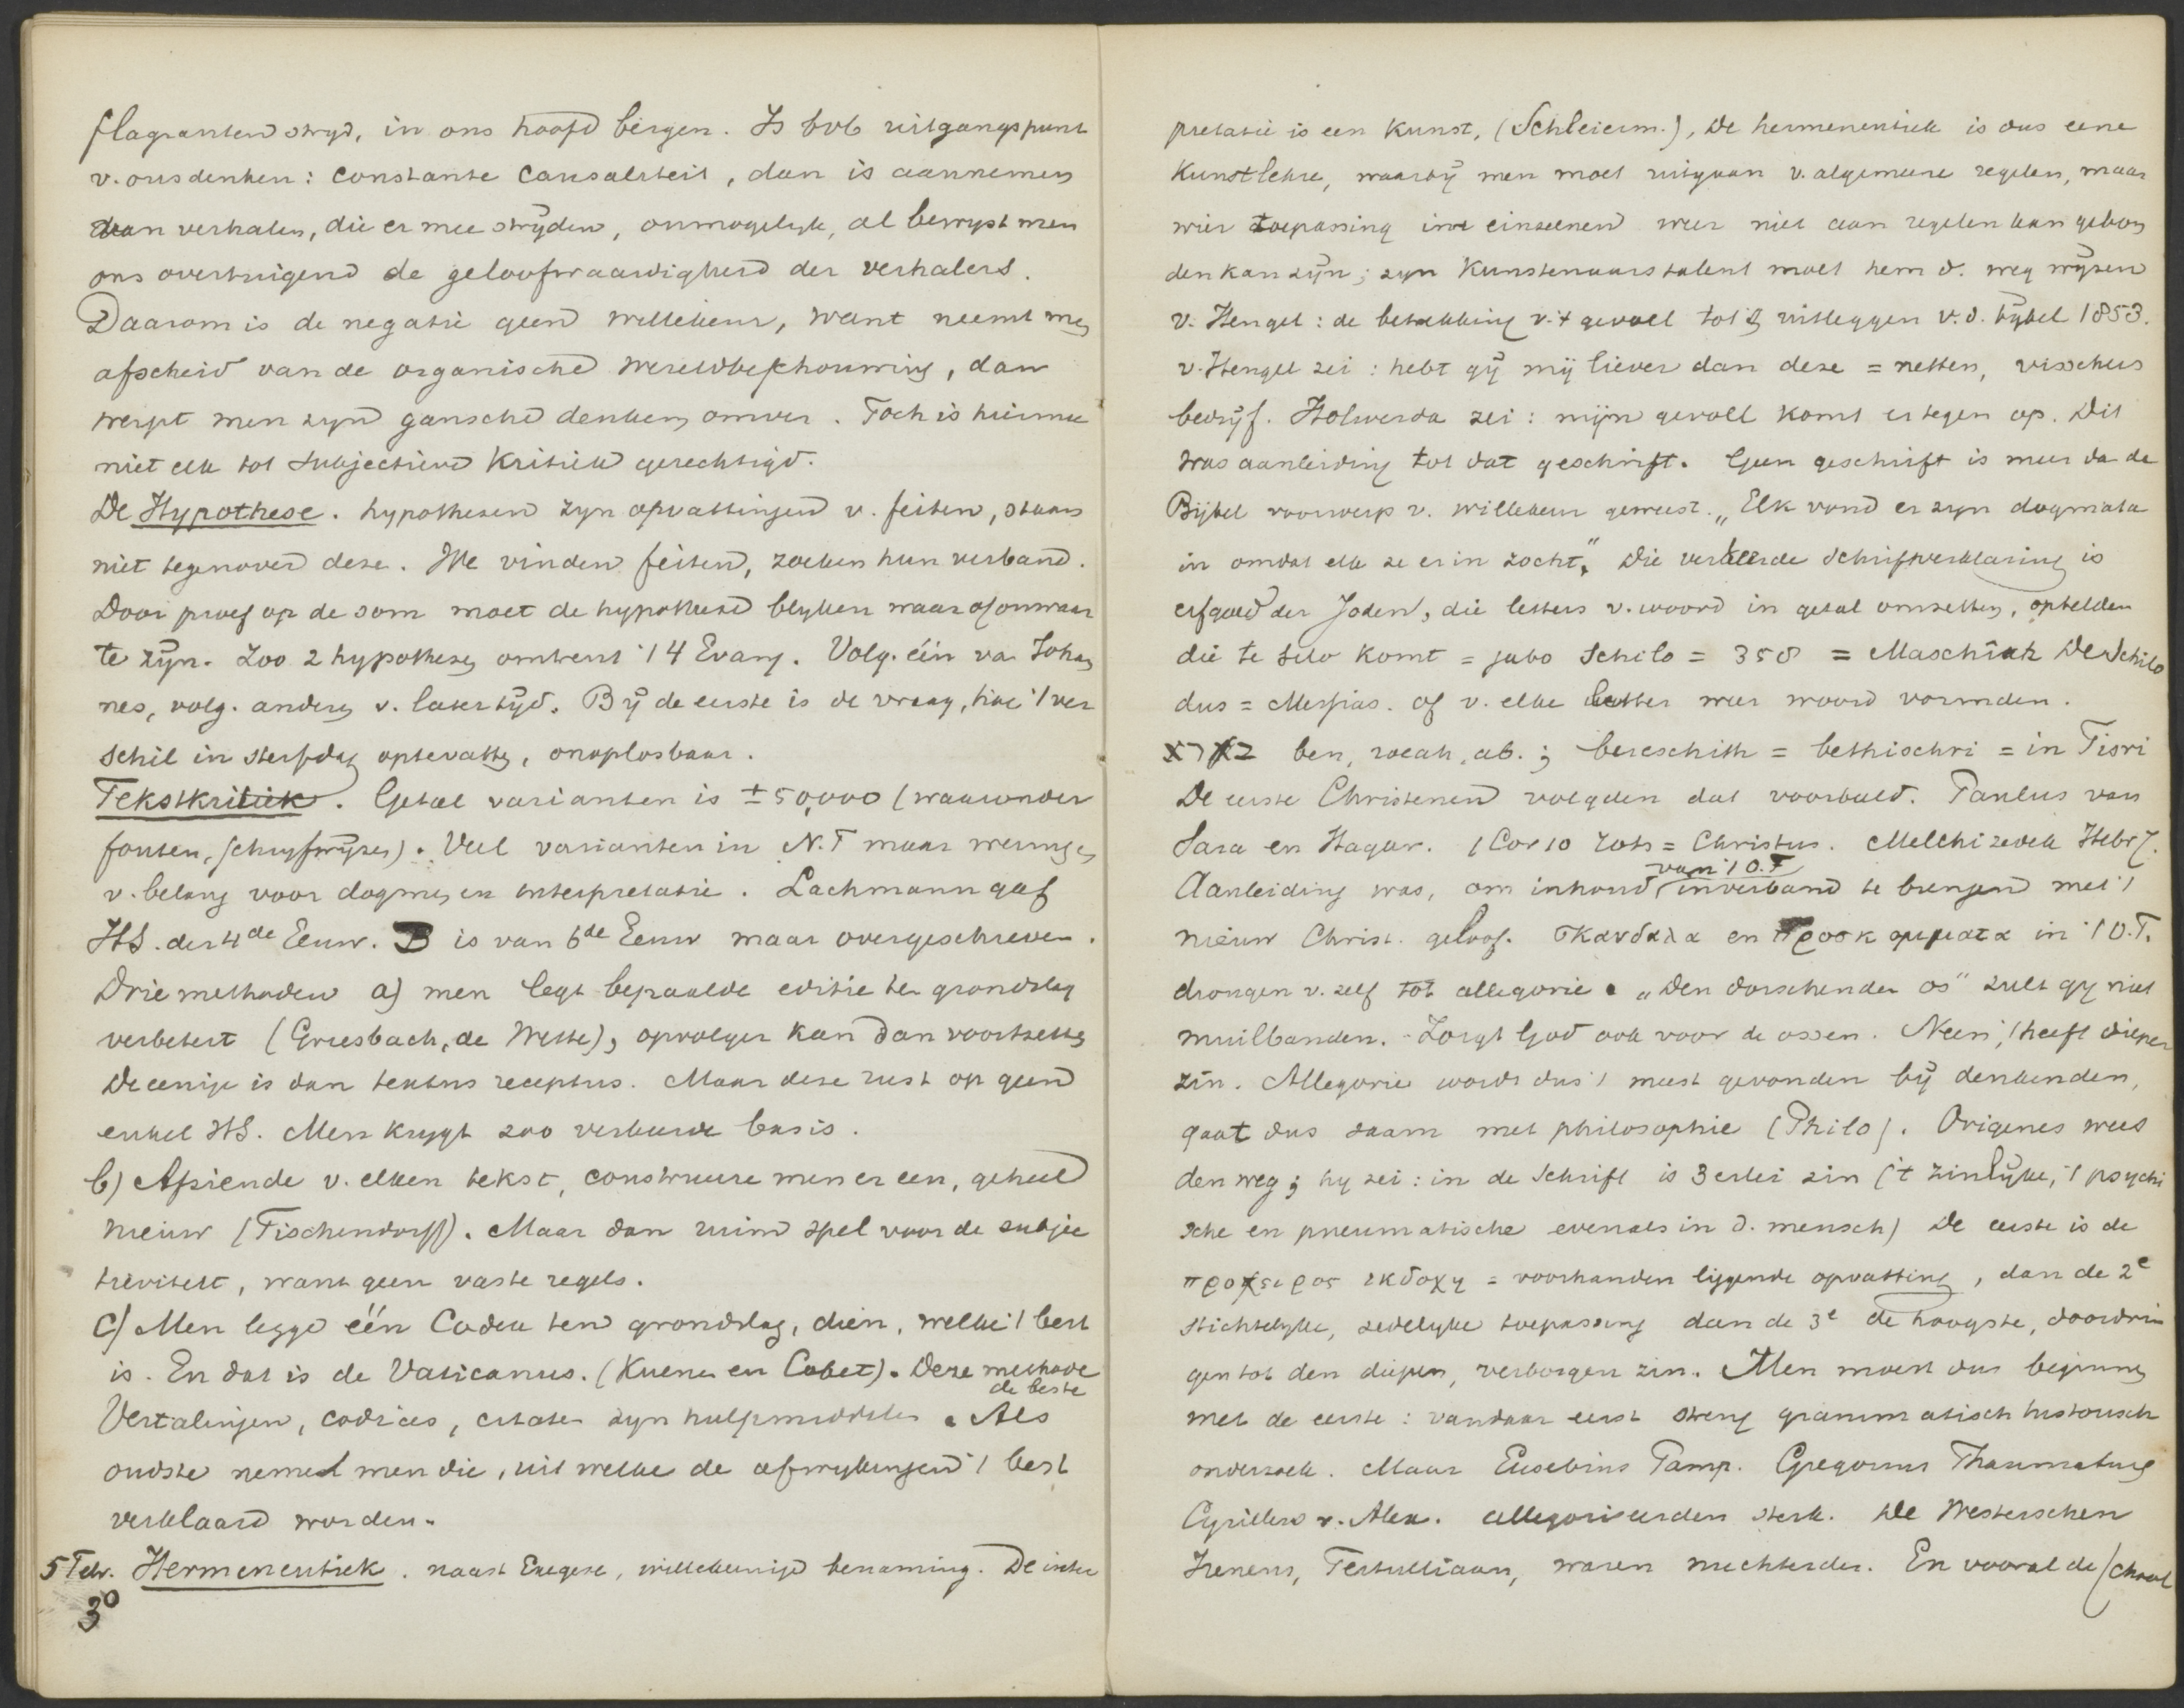 flagranten stryd, in ons hoofd bergen. Is bvb uitgangspunt
v. ons denken: constante causaliteit, dan is aannemen
van verhalen, die er mee stryden, onmogelyk, al bewyst men
ons overtuigend de geloofwaardigheid der verhalers.
Daarom is de negatie geen willekeur, want neemt men
afscheid van de organische wereldbeschouwing, dan
werpt men zyn gansche denken omver. Toch is hiermee
niet elk tot subjectieve kritiek gerechtigd.
De Hypothese. hypothesen zyn opvattingen v. feiten, staan
niet tegenover deze. We vinden feiten, zoeken hun verband.
Door proef op de som moet de hypothese blyken waar of onwaar
te zyn. Zoo 2 hypothesen omtrent 't 4 Evang. Volg. één van Johan
nes, volg. anderen v. later tyd. By de eerste is de vraag, hoe 't ver
schil in sterfdag optevatten, onoplosbaar.
Tekstkritiek. Getal varianten is ± 50,000 (waaronder
fouten, schryfwyzen). Veel varianten in N.T maar weinige
v. belang voor dogma en interpretatie. Lachmann gaf
HS. der 4de Eeuw. B is van 6de Eeuw maar overgeschreven.
Drie methoden a) men legt bepaalde editie ten grondslag
verbetert (Griesbach, de Wette), opvolger kan dan voortzetten
De eenige is dan textus receptus. Maar deze rust op geen
enkel HS. Men krygt zoo verkeerde basis.
b) Afziende v. elken tekst, construeere men er een, geheel
nieuw (Tischendorff). Maar dan ruim spel voor de subjec
tiviteit, want geen vaste regels.
c) Men legge één Codex ten grondslag, dien, welke 't best
is. En dat is de Vaticanus. (Kuenen en Cobet). Deze methode
de beste
Vertalingen, codices, citaten zyn hulpmiddelen. Als
oudste nemet men die, uit welke de afwykingen 't best
verklaard worden.
5 Febr. Hermeneutiek. naast Exegese, willekeurige benaming. De inter
3º
pretatie is een kunst, (Schleierm.), De hermeneutiek is dus eene
Kunstlehre, waarby men moet uitgaan v. algemeene regelen, maar
wier toepassing in einzelnen weer niet aan regelen kan gebon
den kan zyn; zyn kunstenaarstalent moet hem d. weg wyzen
v. Hengel: de betrekking v. 't gevoel tot uitleggen v. d. bybel 1853.
v. Hengel zei: hebt gy my liever dan deze = netten, visschers
bedryf. Holwerda zei: mijn gevoel komt er tegen op. Dit
was aanleiding tot dat geschrift. Geen geschrift is meer dan de
Bijbel voorwerp v. willekeur geweest. „Elk vond er zyn dogmata
in omdat elk ze er in zocht." Die verkeerde schriftverklaring is
erfgoed der Joden, die letters v. woord in getal omzetten, optelden
die te silo komt = jabo Schilo = 358 = Maschiach De Schilo
dus = Messias. of v. elke letter weer woord vormden.
ben, roeah, ab.; bereschith = bethischri = in Tisri
De eerste Christenen volgden dat voorbeeld. Paulus van
Sara en Hagar. 1 Cor 10 rots = Christus. Melchizedek Hebr 7.
van 't O.T
Aanleiding was, om inhoud in verband te brengen met 't
nieuw Christ. geloof. σκανδαλα en προσκομματα in 't O.T.
drongen v. zelf tot allegorie. „Den dorschenden os" zult gy niet
muilbanden. Zorgt God ook voor de ossen. Neen, 't heeft dieper
zin. Allegorie wordt dus 't meest gevonden by denkenden,
gaat dus saam met philosophie (Philo). Origenes wees
den weg; hy zei: in de Schrift is 3 erlei zin ('t zinlyke, 't psychi
sche en pneumatische evenals in d. mensch) De eerste is de
προχειρος εκδοχη = voorhanden liggende opvatting, dan de 2e
stichtelyke, zedelyke toepassing dan de 3e de hoogste, doordrin
gen tot den diepen, verborgen zin. Men moest dus beginnen
met de eerste: vandaar eerst streng grammatisch historisch
onderzoek. Maar Eusebius Pamp. Gregorius Thaumaturg
Cyrillus v. Alex. allegoriseerden sterk. De Westerschen
Ireneus, Tertulliaan, waren nuchterder. En vooral de school